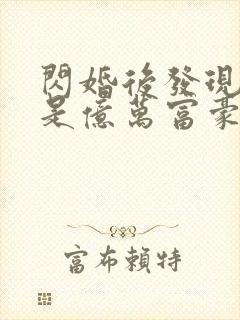 閃婚後發現
是億萬富豪
富布賴特